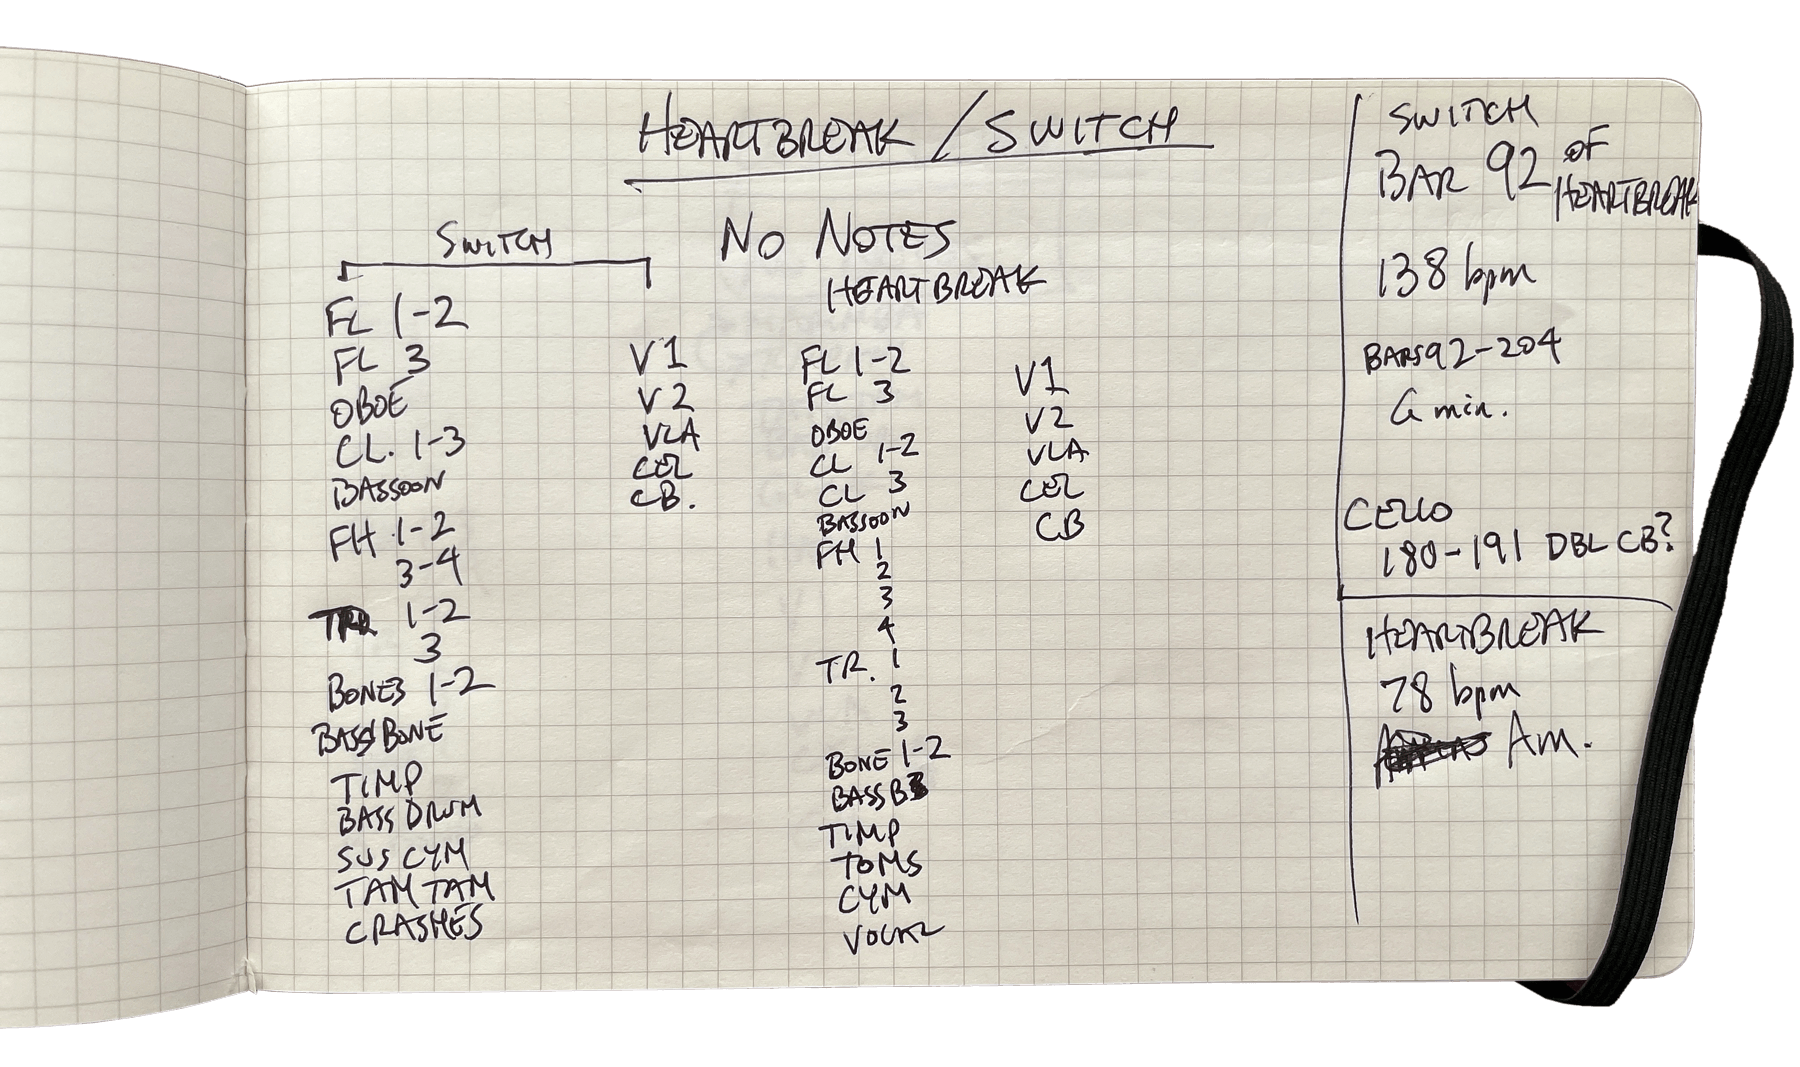 HEARTBREAK / SWITCH
SWITCH
FL 1-2
FL 3
OBOE
CL. 1-3
BASSOON
FH 1-2
3-4
TR 1-2
3
BONES 1-2
BASS BONE
TIMP
BASS DRUM
SUS CYM
TAM TAM
CRASHES
V1
V2
VLA
CEL
CB.
NO NOTES
HEARTBREAK
FL 1-2
FL 3
OBOE
CL 1-2
CL 3
BASSOON
FH 1
2
3
4
TR. 1
2
3
BONE 1-2
BASS B
TIMP
TOMS
CYM
VOCAL
V1
V2
VLA
CEL
CB
SWITCH
BAR 92 OF
HEARTBREAK
138 bpm
BARS 92-204
G min.
CELLO
180-191 DBL CB?
HEARTBREAK
78 bpm
Am.